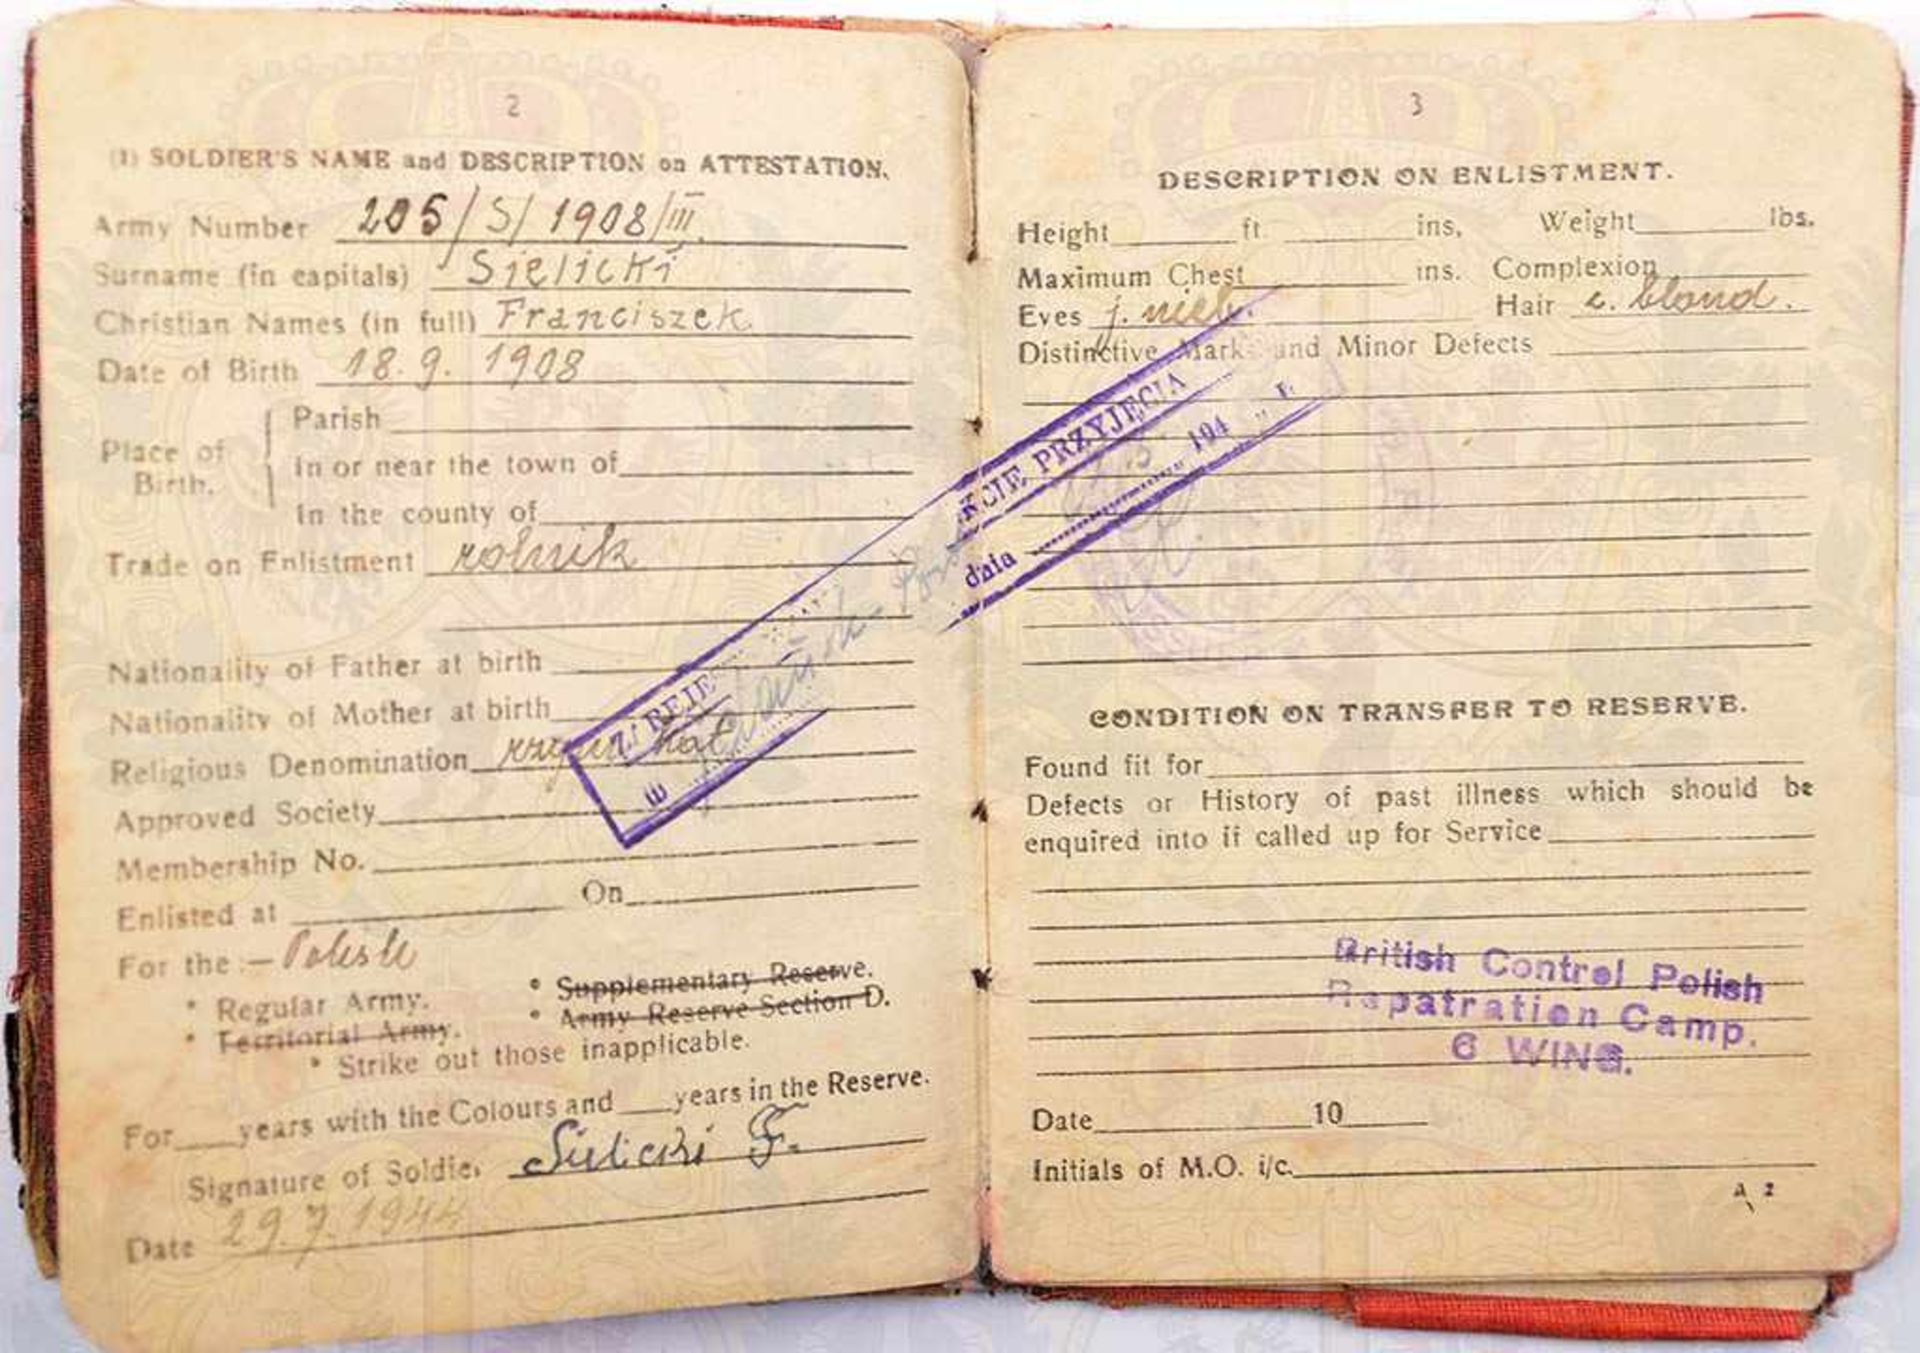 2
(1) SOLDIER'S NAME and DESCRIPTION on ATTESTATION.
Army Number 205/S/1908/III.
Surname (in capitals) Sielicki
Christian Names (in full) Franciszek
Date of Birth 18.9.1908
Place of Birth.
Parish
In or near the town of
In the county of
Trade on Enlistment rolnik
Nationality of Father at birth
Nationality of Mother at birth
Religious Denomination rzym kat
Approved Society
Membership No.
Enlisted at On
For the :— Polish
* Regular Army. * Supplementary Reserve.
* Territorial Army. * Army Reserve Section D.
* Strike out those inapplicable.
For years with the Colours and years in the Reserve.
Signature of Soldier Sielicki F.
Date 29.7.1944
PUNKCIE PRZYJĘCIA
w data 194 r.
3
DESCRIPTION ON ENLISTMENT.
Height ft ins. Weight lbs.
Maximum Chest ins. Complexion
Eyes j. nieb. Hair c. blond.
Distinctive Marks and Minor Defects
CONDITION ON TRANSFER TO RESERVE.
Found fit for
Defects or History of past illness which should be
enquired into if called up for Service
British Control Polish
Repatration Camp.
6 WING.
Date 10
Initials of M.O. i/c.
A 2